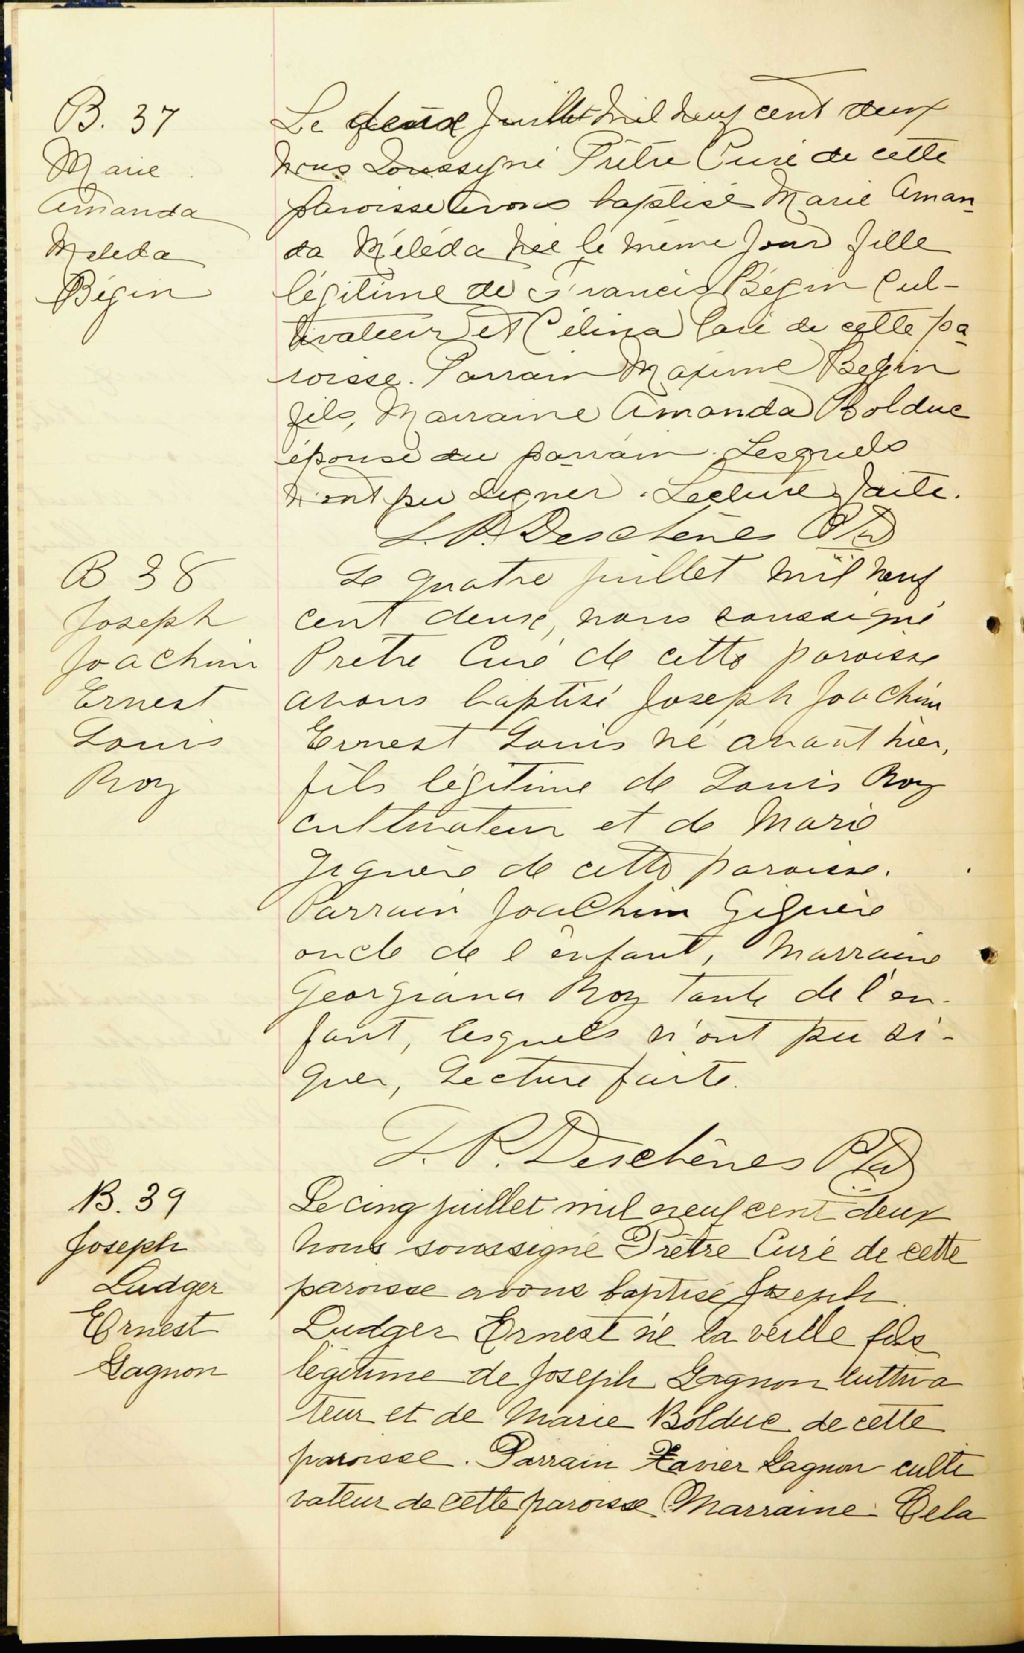 B. 37
Marie
Amanda
Meleda
Bégin
Le deux Juillet mil neuf cent deux
nous soussigné Prêtre Curé de cette
paroisse avons baptisé Marie Aman-
da Méléda née le même jour fille
légitime de Francis Bégin Cul-
tivateur et Célina de cette pa
roisse. Parrain Maxime Bégin
fils, Marraine Amanda Bolduc
épouse du parrain. Lesquels
n'ont pu signer. Lecture faite.
J. P. Deschênes Ptr
B 38
Joseph
Joachim
Ernest
Louis
Roy
Le quatre juillet mil neuf
cent deux, nous soussigné
Prêtre Curé de cette paroisse
avons baptisé Joseph Joachim
Ernest Louis né avant hier,
fils légitime de Louis Roy
cultivateur et de Marie
Giguère de cette paroisse.
Parrain Joachim Giguère
oncle de l'enfant, Marraine
Georgiana Roy tante de l'en-
fant, lesquels n'ont pu si-
gner, Lecture faite.
J. P. Deschênes Ptr
B. 39
Joseph
Ludger
Ernest
Gagnon
Le cinq juillet mil neuf cent deux
nous soussigné Prêtre Curé de cette
paroisse avons baptisé Joseph
Ludger Ernest né la veille fils
légitime de Joseph Gagnon cultiva
teur et de Marie Bolduc de cette
paroisse. Parrain Xavier Gagnon culti
vateur de cette paroisse. Marraine Céla